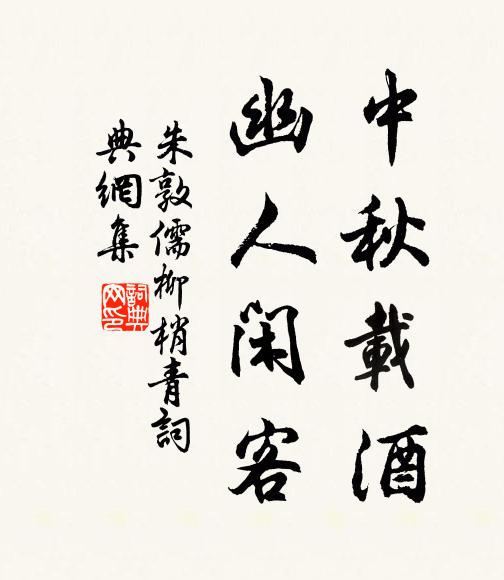 中秋載酒
幽人閑客
朱敦儒柳梢青詞
典網集
詞典網印